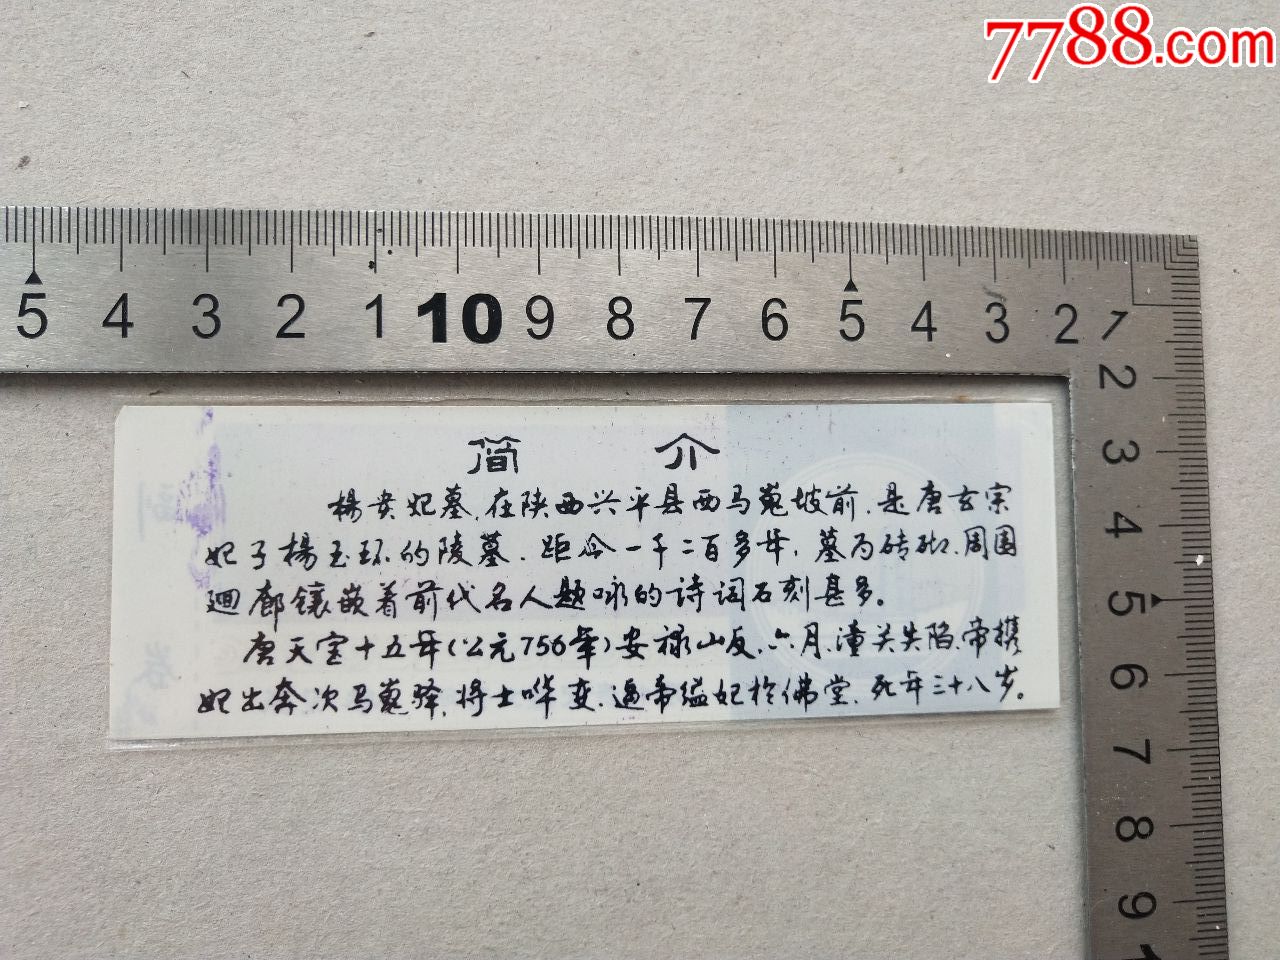 7788.com
5 4 3 2 1 10 9 8 7 6 5 4 3 2 1
2
3
4
5
6
7
8
9
简 介
楊贵妃墓，在陕西兴平县西马嵬坡前，是唐玄宗
妃子楊玉环的陵墓，距今一千二百多年，墓为砖砌，周围
迴廊镶嵌着前代名人题咏的诗词石刻甚多。
唐天宝十五年（公元756年）安禄山反，六月，潼关失陷，帝携
妃出奔次马嵬驿，将士哗变，逼帝缢妃於佛堂，死年三十八岁。